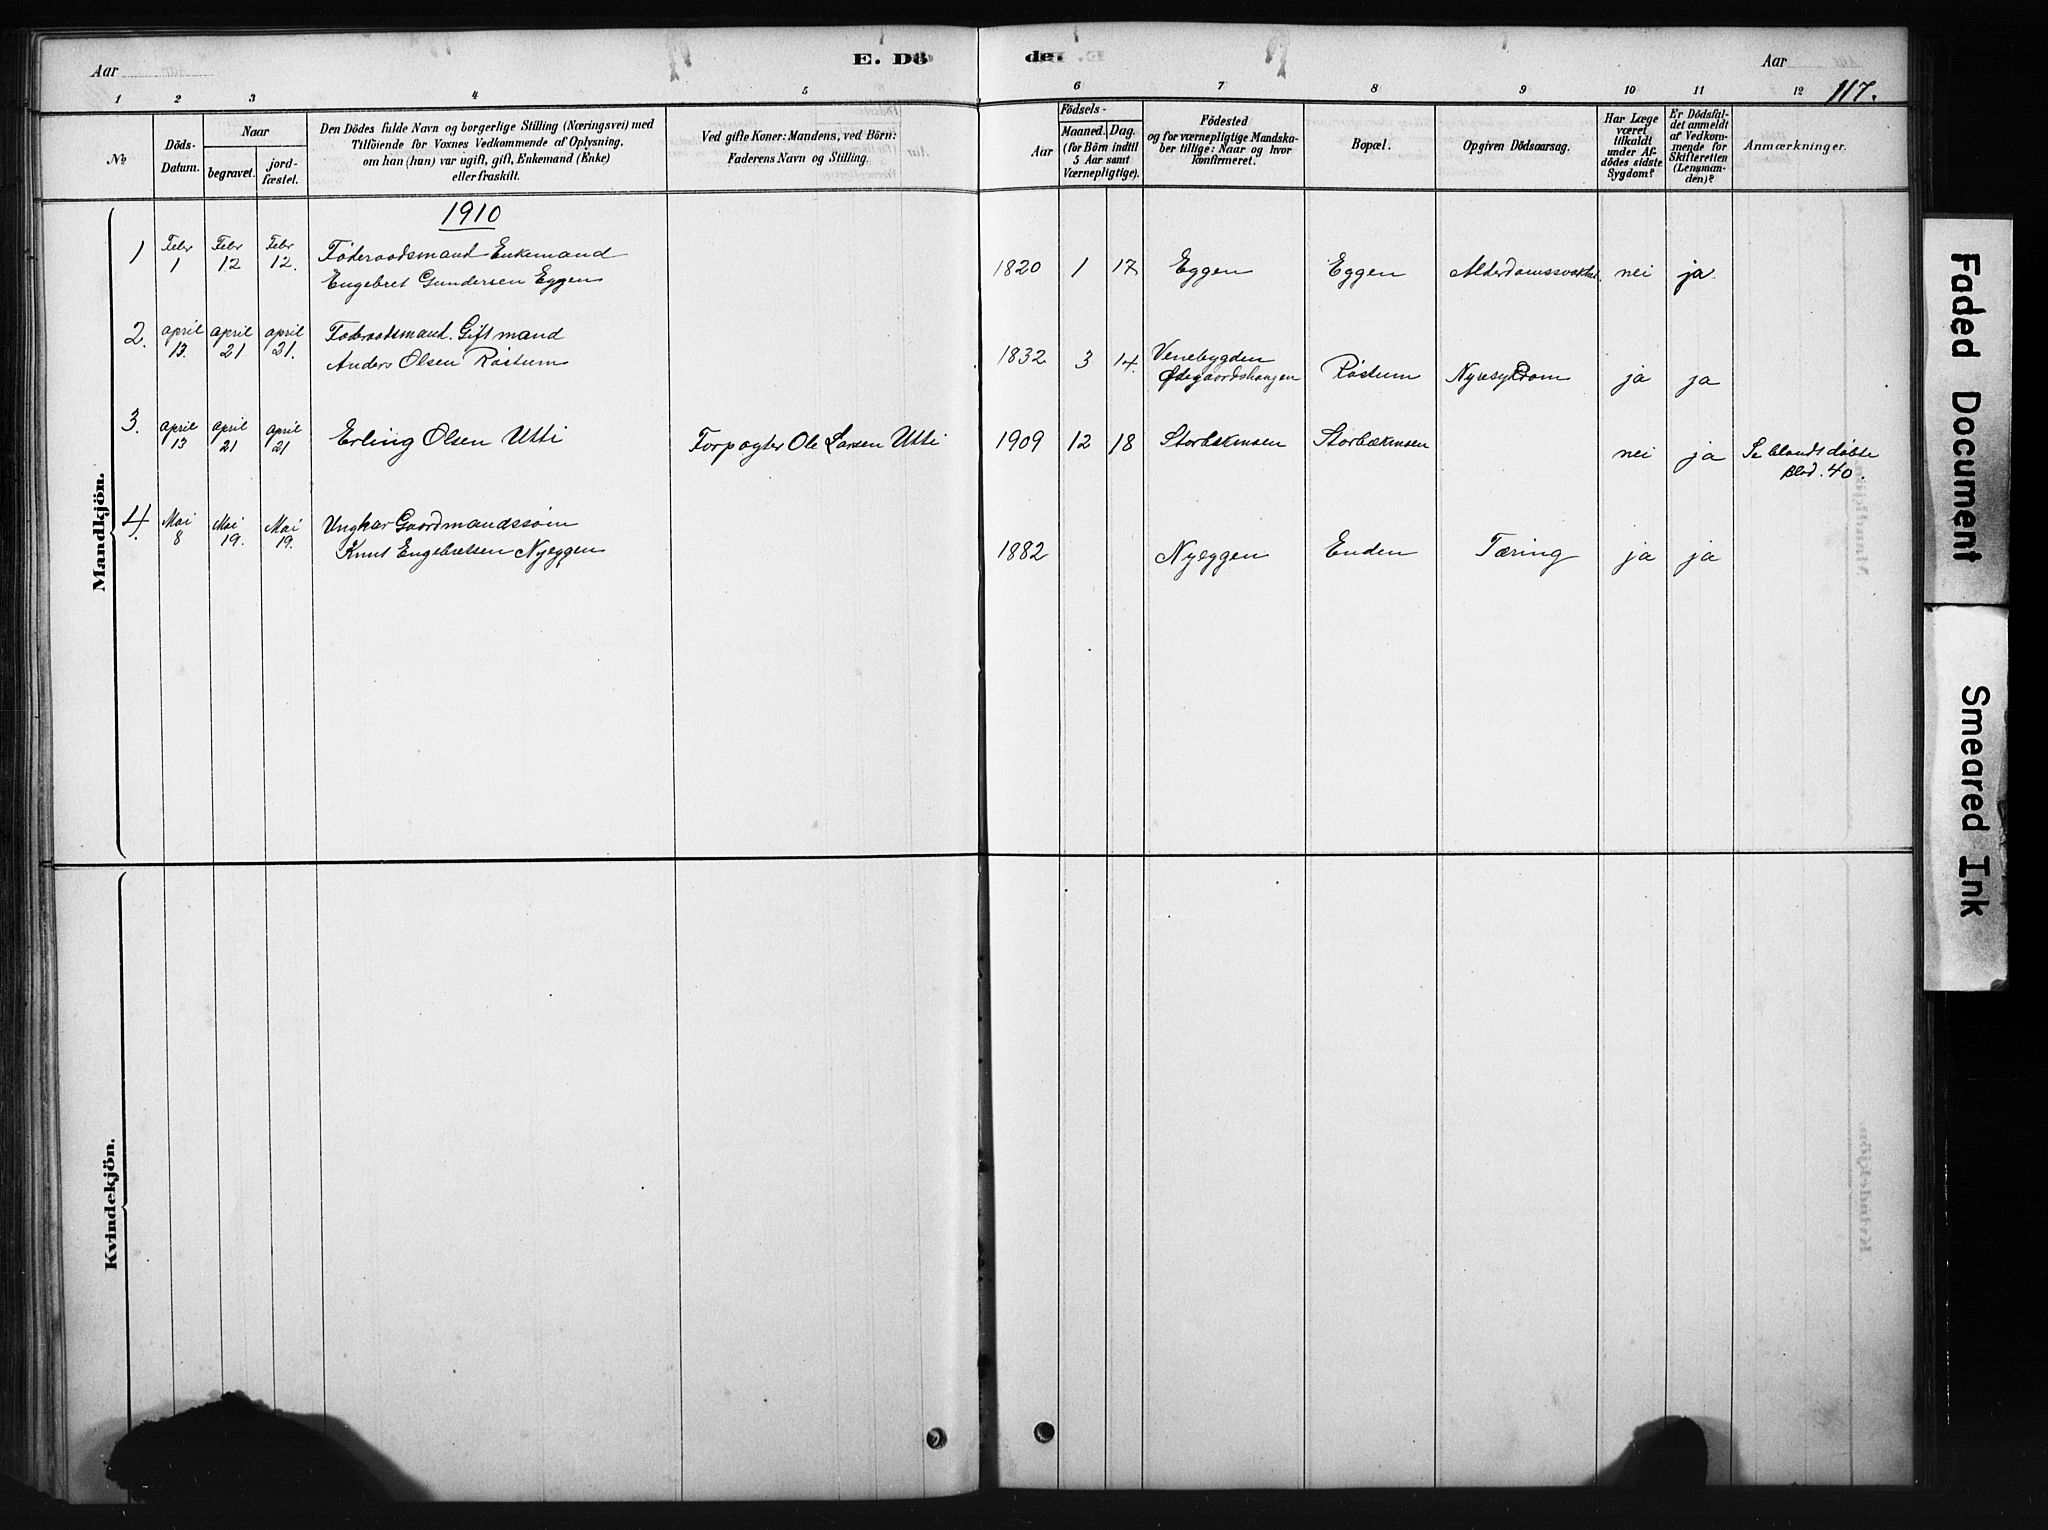 Aar E. Dö de. Aar
1 2 3 4 5 6 7 8 9 10 11 12 117.
№
Döds-
Datum.
Naar
begravet.
jord-
fæstet.
Den Dödes fulde Navn og borgerlige Stilling (Næringsvei) med
Tilföiende for Voxnes Vedkommende af Oplysning,
om han (hun) var ugift, gift, Enkemand (Enke)
eller fraskilt.
Ved gifte Koner: Mandens, ved Börn:
Faderens Navn og Stilling.
Födsels-
Aar
Maaned. Dag.
(for Börn indtil
5 Aar samt
Værnepligtige).
Födested
og for værnepligtige Mandska-
ber tillige: Naar og hvor
konfirmeret.
Bopæl.
Opgiven Dödsaarsag.
Har Læge
været
tilkaldt
under Af-
dödes sidste
Sygdom?
Er Dödsfal-
det anmeldt
af Vedkom-
mende for
Skifteretten
(Lensman-
den)?
Anmærkninger.
Mandkjön.
1910
1 Febr 1 Febr 12 Febr 12. Føderaadsmand Enkemand
Engebret Gundersen Eggen 1820 1 17 Eggen Eggen Alderdomssvakhet nei ja
2. april 13. april 21 april 21. Føderaadsmand. Gift mand
Anders Olsen Røstum 1832 3 14. Venebygden
Ødegaardshaugen Røstum Nyresykdom ja ja
3. april 13 april 21 april 21 Erling Olsen Utti Forpagter Ole Larsen Utti 1909 12 18 Storbækmoen Storbækmoen nei ja Se blandt døbte
Blad. 40.
4. Mai 8 Mai 19. Mai 19. Ungkar Gaardmandssøn
Knut Engebretsen Nyeggen 1882 Nyeggen Enden Tæring ja ja
Kvindekjön.
Faded Document
Smeared Ink